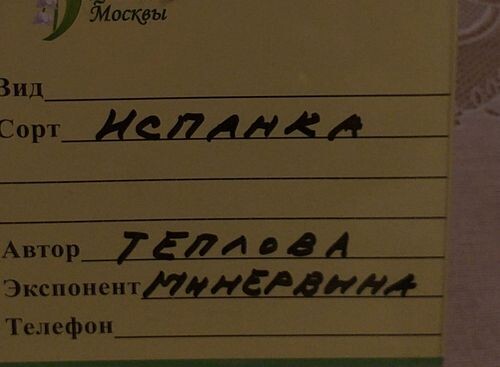 Москвы
Вид
Сорт ИСПАНКА
Автор ТЕПЛОВА
Экспонент МИНЕРВИНА
Телефон